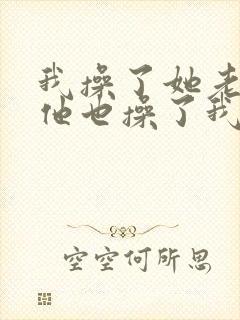 我操了她老
他也操了我
空空何所思